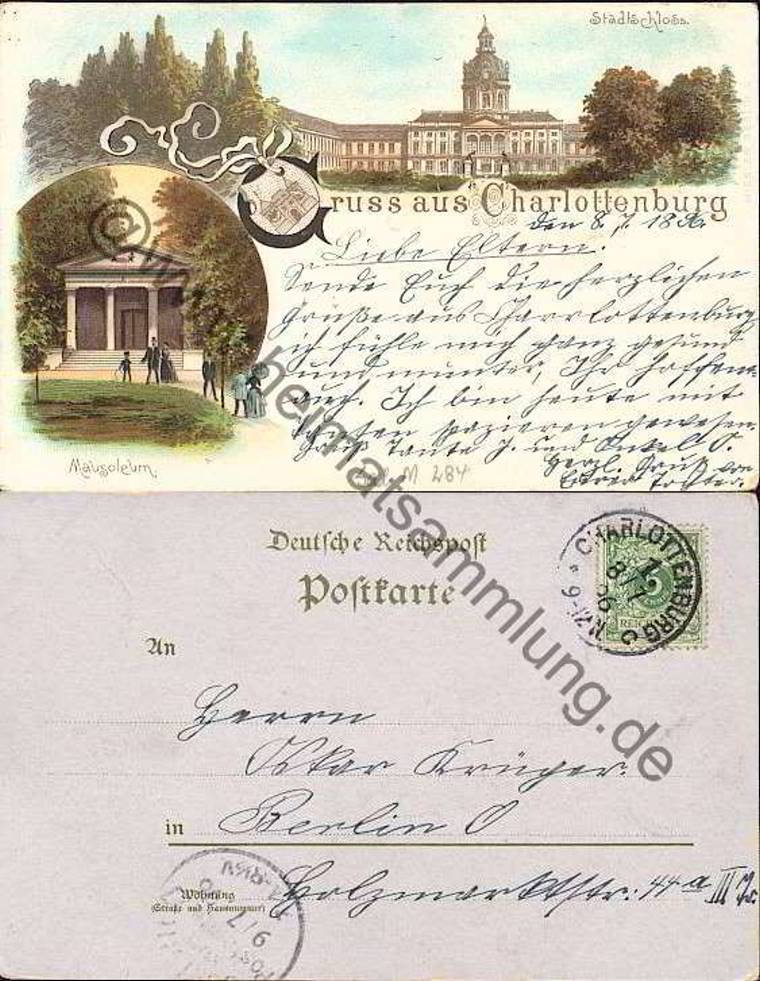 Stadtschloss.
Gruss aus Charlottenburg
den 8. 7. 1896.
Liebe Eltern.
Sende Euch die herzlichen
Grüße aus Charrlottenburg
ich fühle mich ganz gesund
und munter, Ihr hoffent.
auch. Ich bin heute mit
spazieren gewesen.
Gruß Tante J. und Onkel O.
Herzl. Gruß von
Eurer Tochter.
Mausoleum.
M 284
@www.heimatsammlung.de
Deutsche Reichspost
Postkarte
CHARLOTTENBURG
8/7
96
REICHSPOST
An
Herrn
Oskar Krüger.
in Berlin O
Holzmarktstr: 44a III Tr.
Wohnung
(Straße und Hausnummer)
9/7